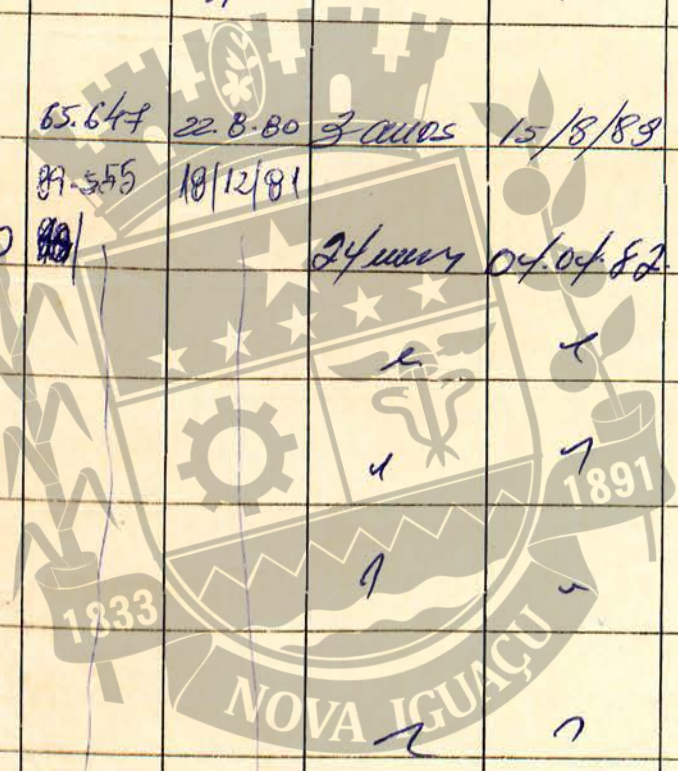 65.647 22.8.80 3 anos 15/8/83
89.555 18/12/81
24 04.04.82
1891
1833
NOVA IGUAÇU